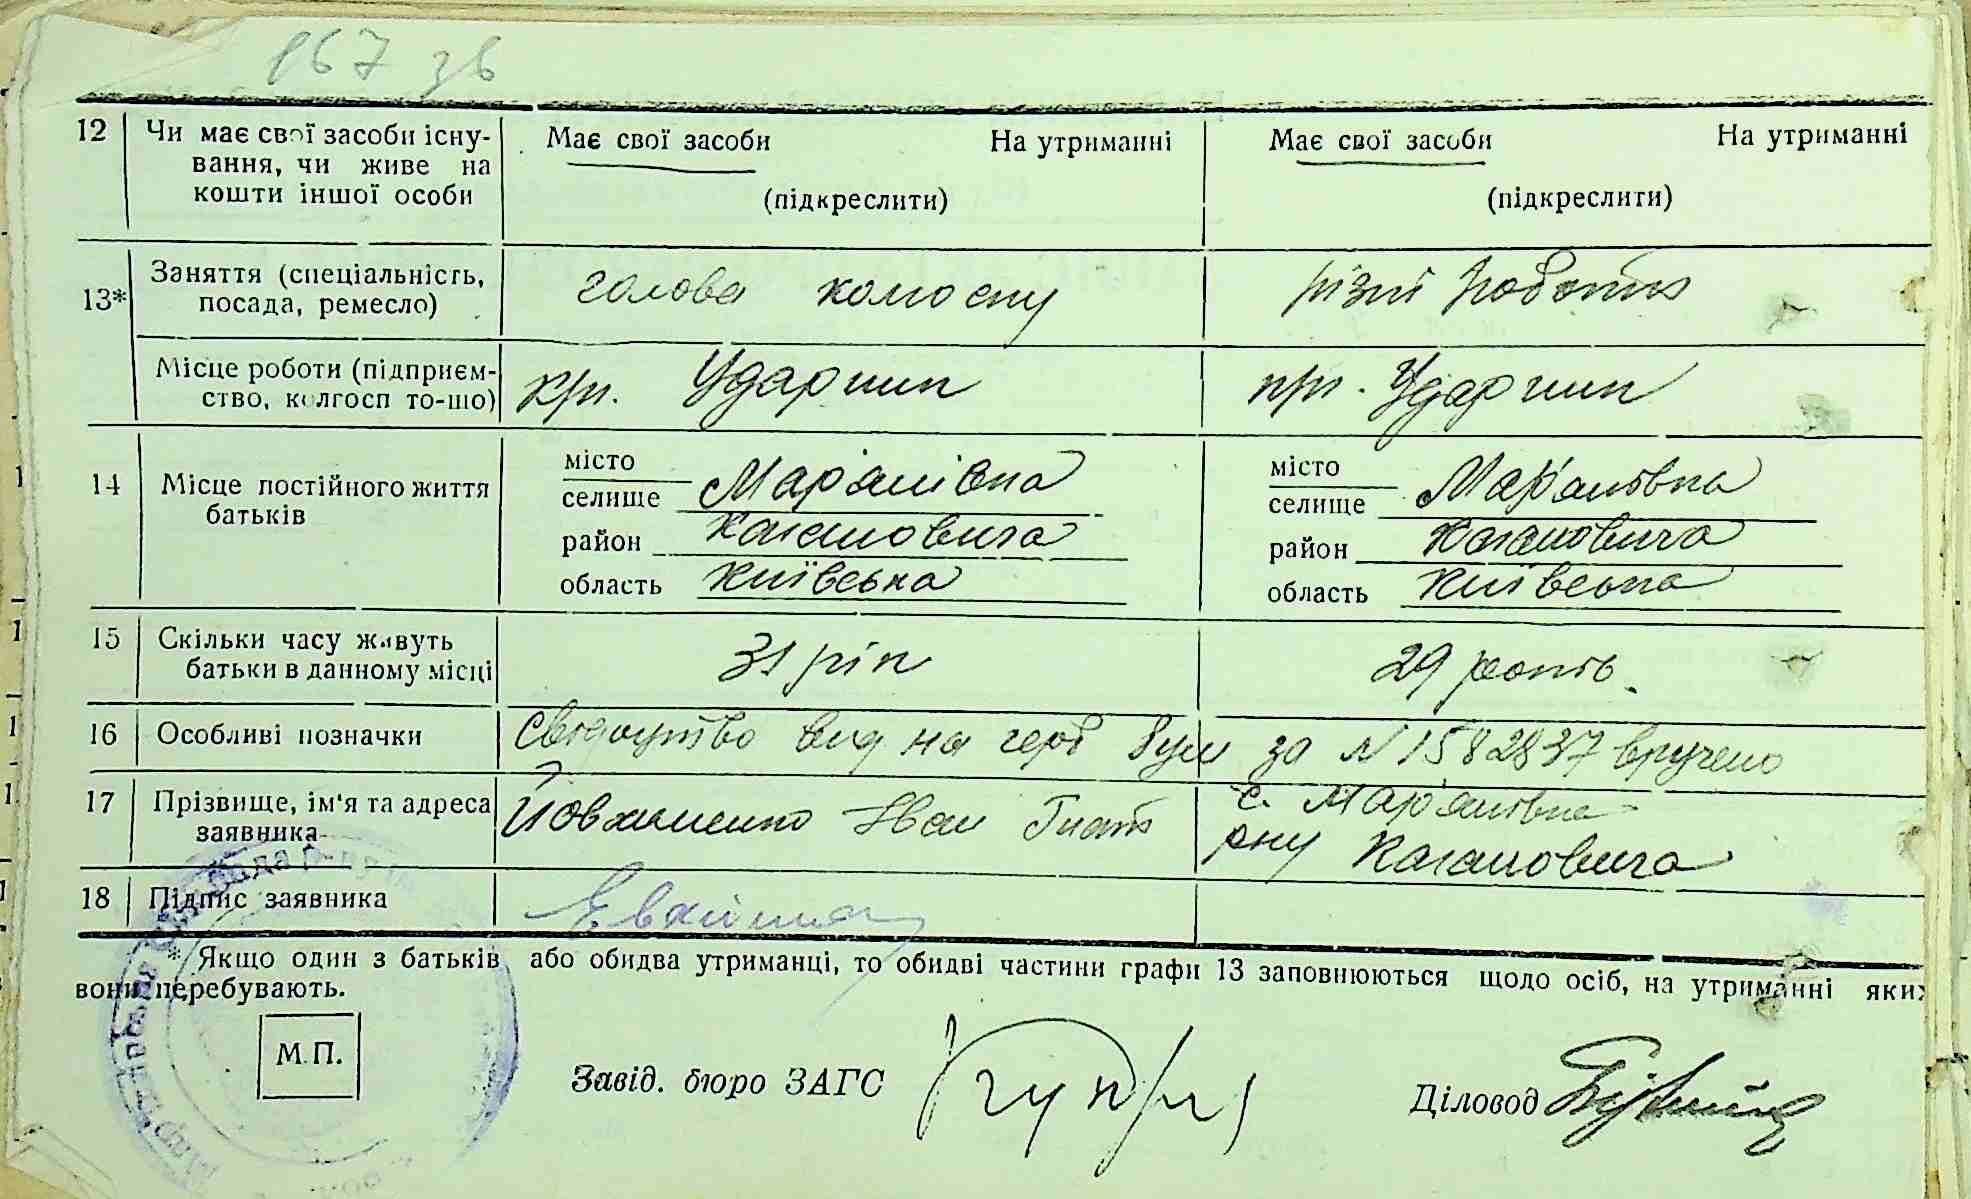 167 зв
12 Чи має свої засоби існу- Має свої засоби На утриманні Має свої засоби На утриманні
вання, чи живе на
кошти іншої особи (підкреслити) (підкреслити)
13* Заняття (спеціальність, голова колгоспу різні роботи
посада, ремесло)
Місце роботи (підприєм- Ударник Ударник
ство, колгосп то-що)
14 Місце постійного життя місто місто
батьків селище Мар'янівка селище Мар'янівка
район Кагановича район Кагановича
область Київська область Київська
15 Скільки часу живуть 31 рік 29 років
батьки в данному місці
16 Особливі позначки Свідоцтво вид на герб за № 1582837 вручено
17 Прізвище, ім'я та адреса Йовхименко Іван Гнат с. Мар'янівка
заявника рну Кагановича
18 Підпис заявника
* Якщо один з батьків або обидва утриманці, то обидві частини графи 13 заповнюються щодо осіб, на утриманні яких
вони перебувають.
М.П. Завід. бюро ЗАГС Діловод